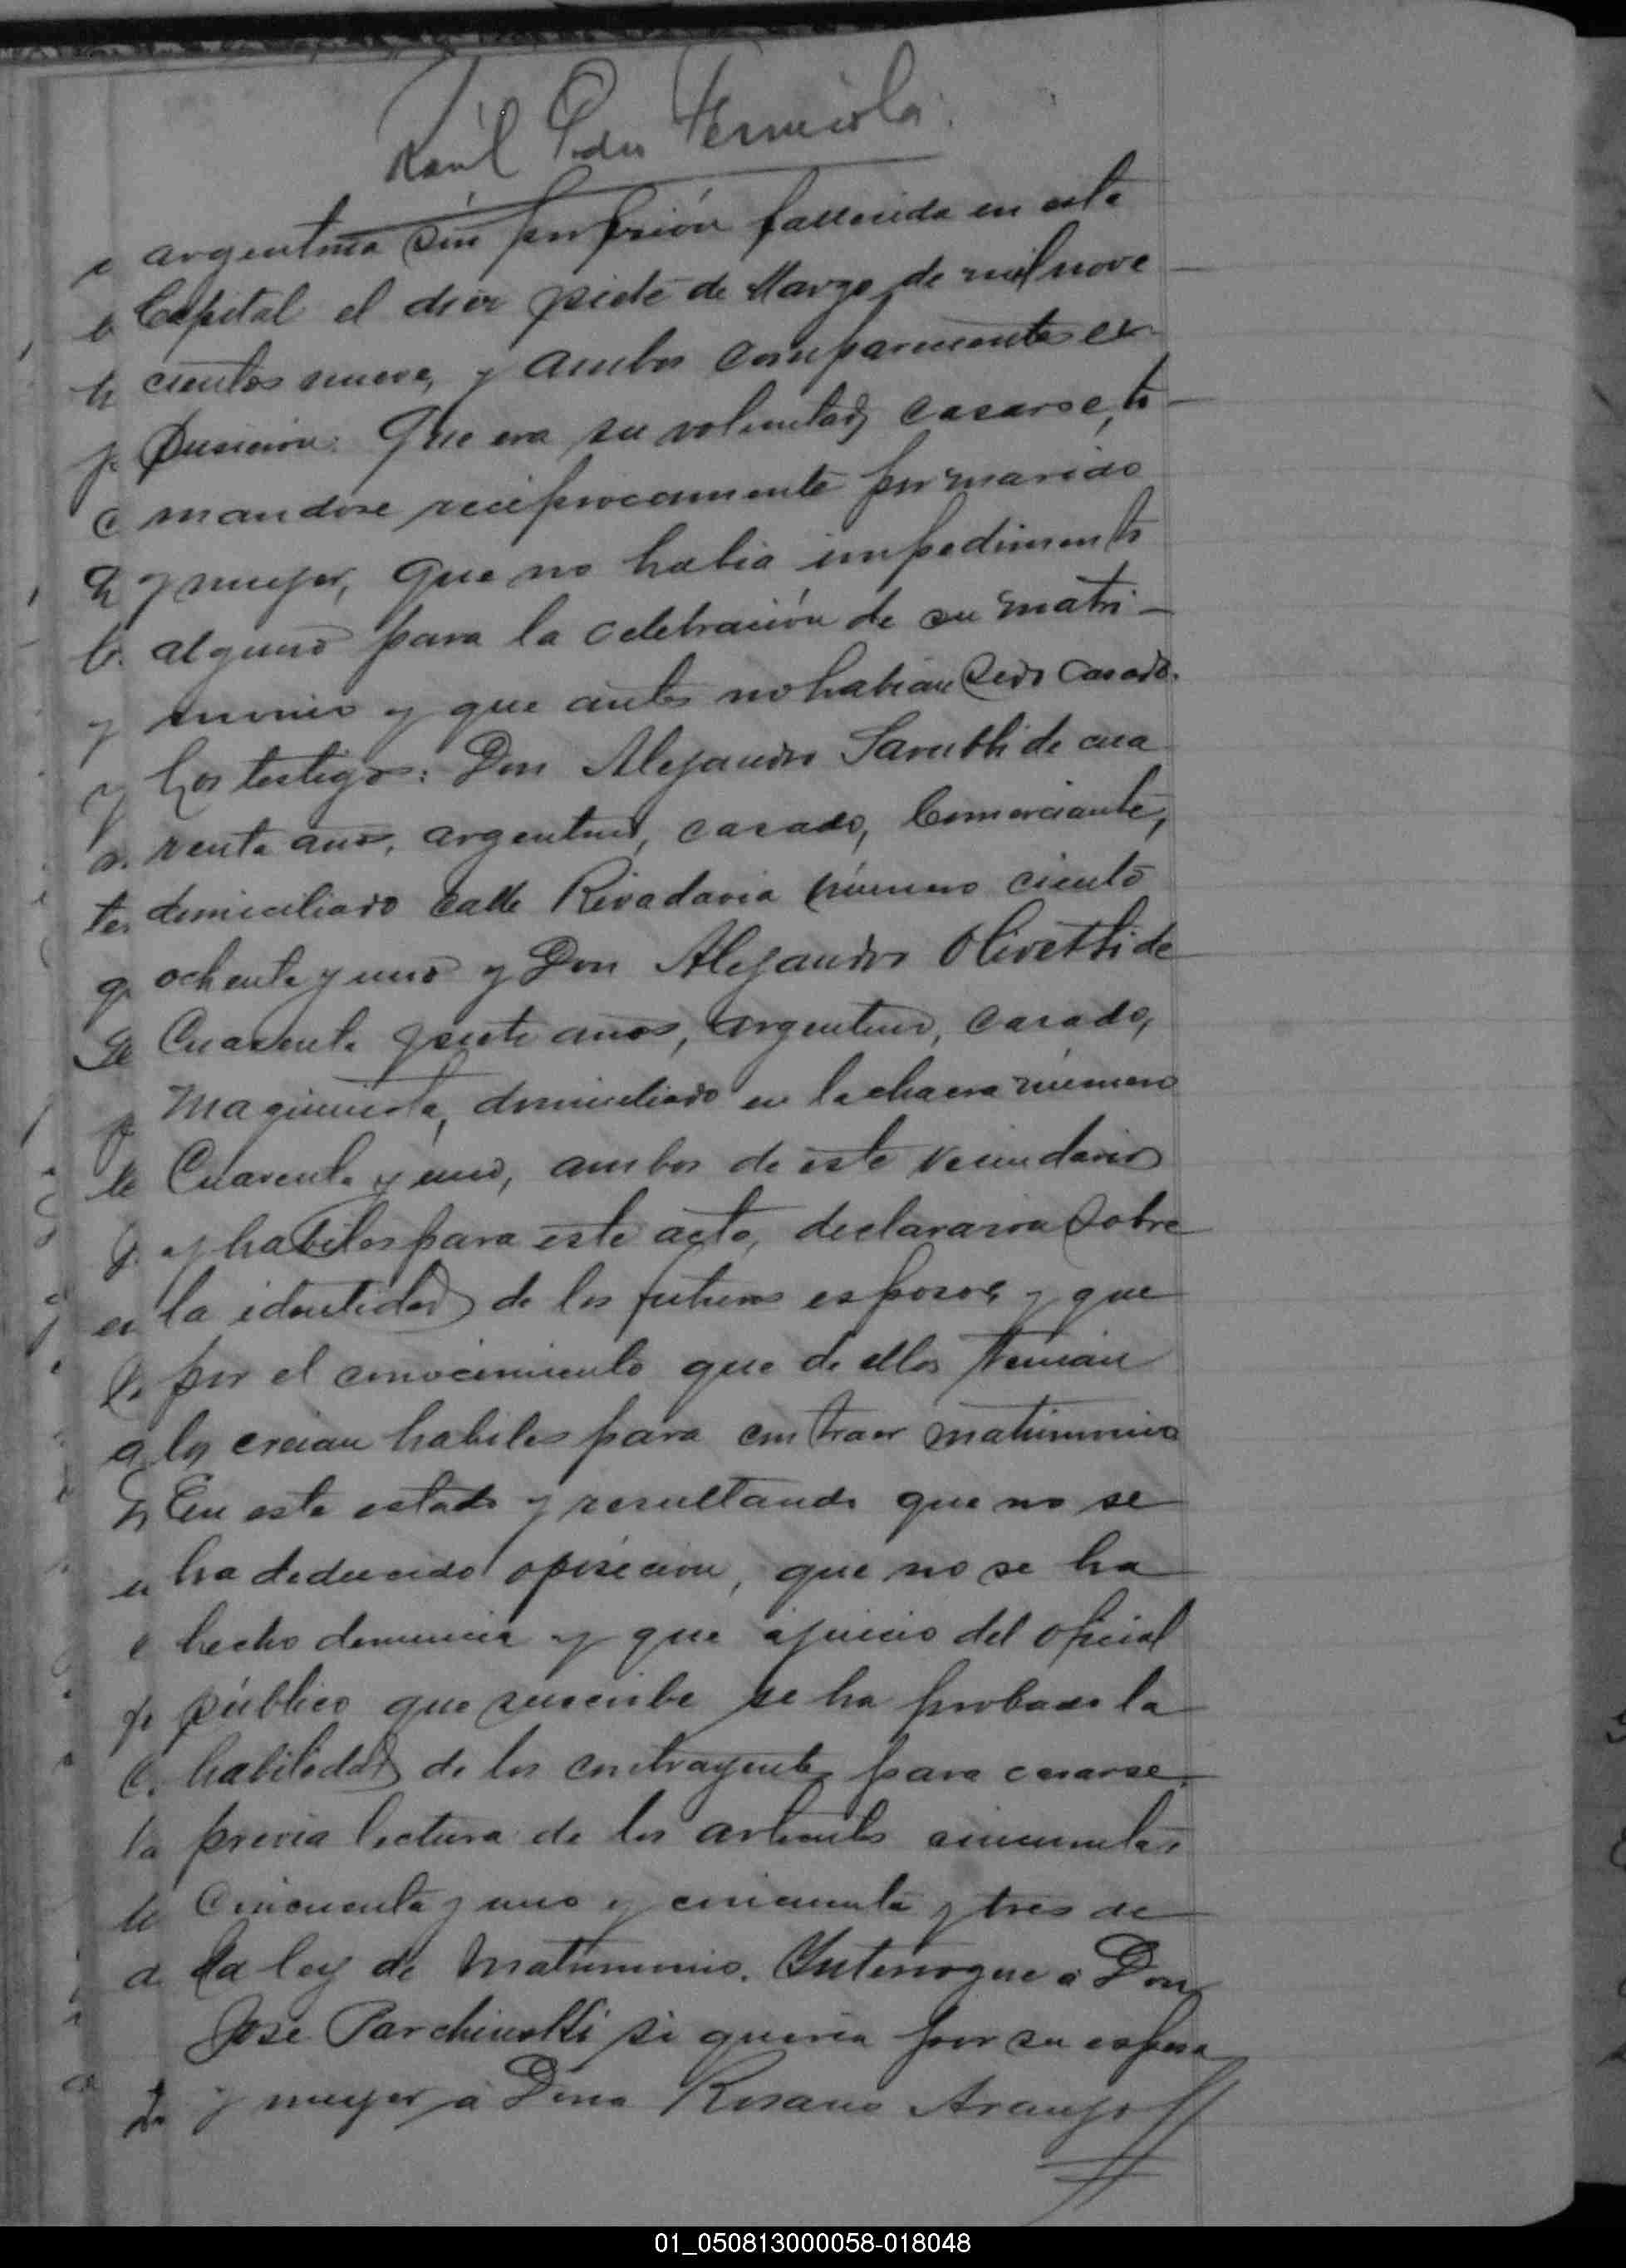 Raúl
argentina sin profesión fallecida en esta
Capital el diez siete de Marzo de mil nove
cientos nueve, y ambos comparecientes ex-
pusieron: Que era su voluntad casarse, to-
mandose reciprocamente por marido
y mujer, que no habia impedimento
alguno para la celebración de su matri-
monio y que antes no habian sido casados.
Los testigos: Don Alejandro Sarubbi de cua
renta años, argentino, casado, Comerciante,
domiciliado calle Rivadavia número ciento
ochenta y uno y Don Alejandro Olivetti de
Cuarenta y siete años, argentino, casado,
Maquinista, domiciliado en la chacra número
Cuarenta y uno, ambos de este vecindario
y habiles para este acto, declararon sobre
la identidad de los futuros esposos y que
por el conocimiento que de ellos tenian
los creian habiles para contraer matrimonio
En este estado y resultando que no se
ha deducido oposicion, que no se ha
hecho denuncia y que a juicio del oficial
público que suscribe se ha probado la
habilidad de los contrayentes para casarse,
previa lectura de los articulos cincuenta,
Cincuenta y uno y cincuenta y tres de
la ley de Matrimonio. Interrogue a Don
José si queria por su esposa
y mujer a Doña Rosario Araujo
01_050813000058-018048